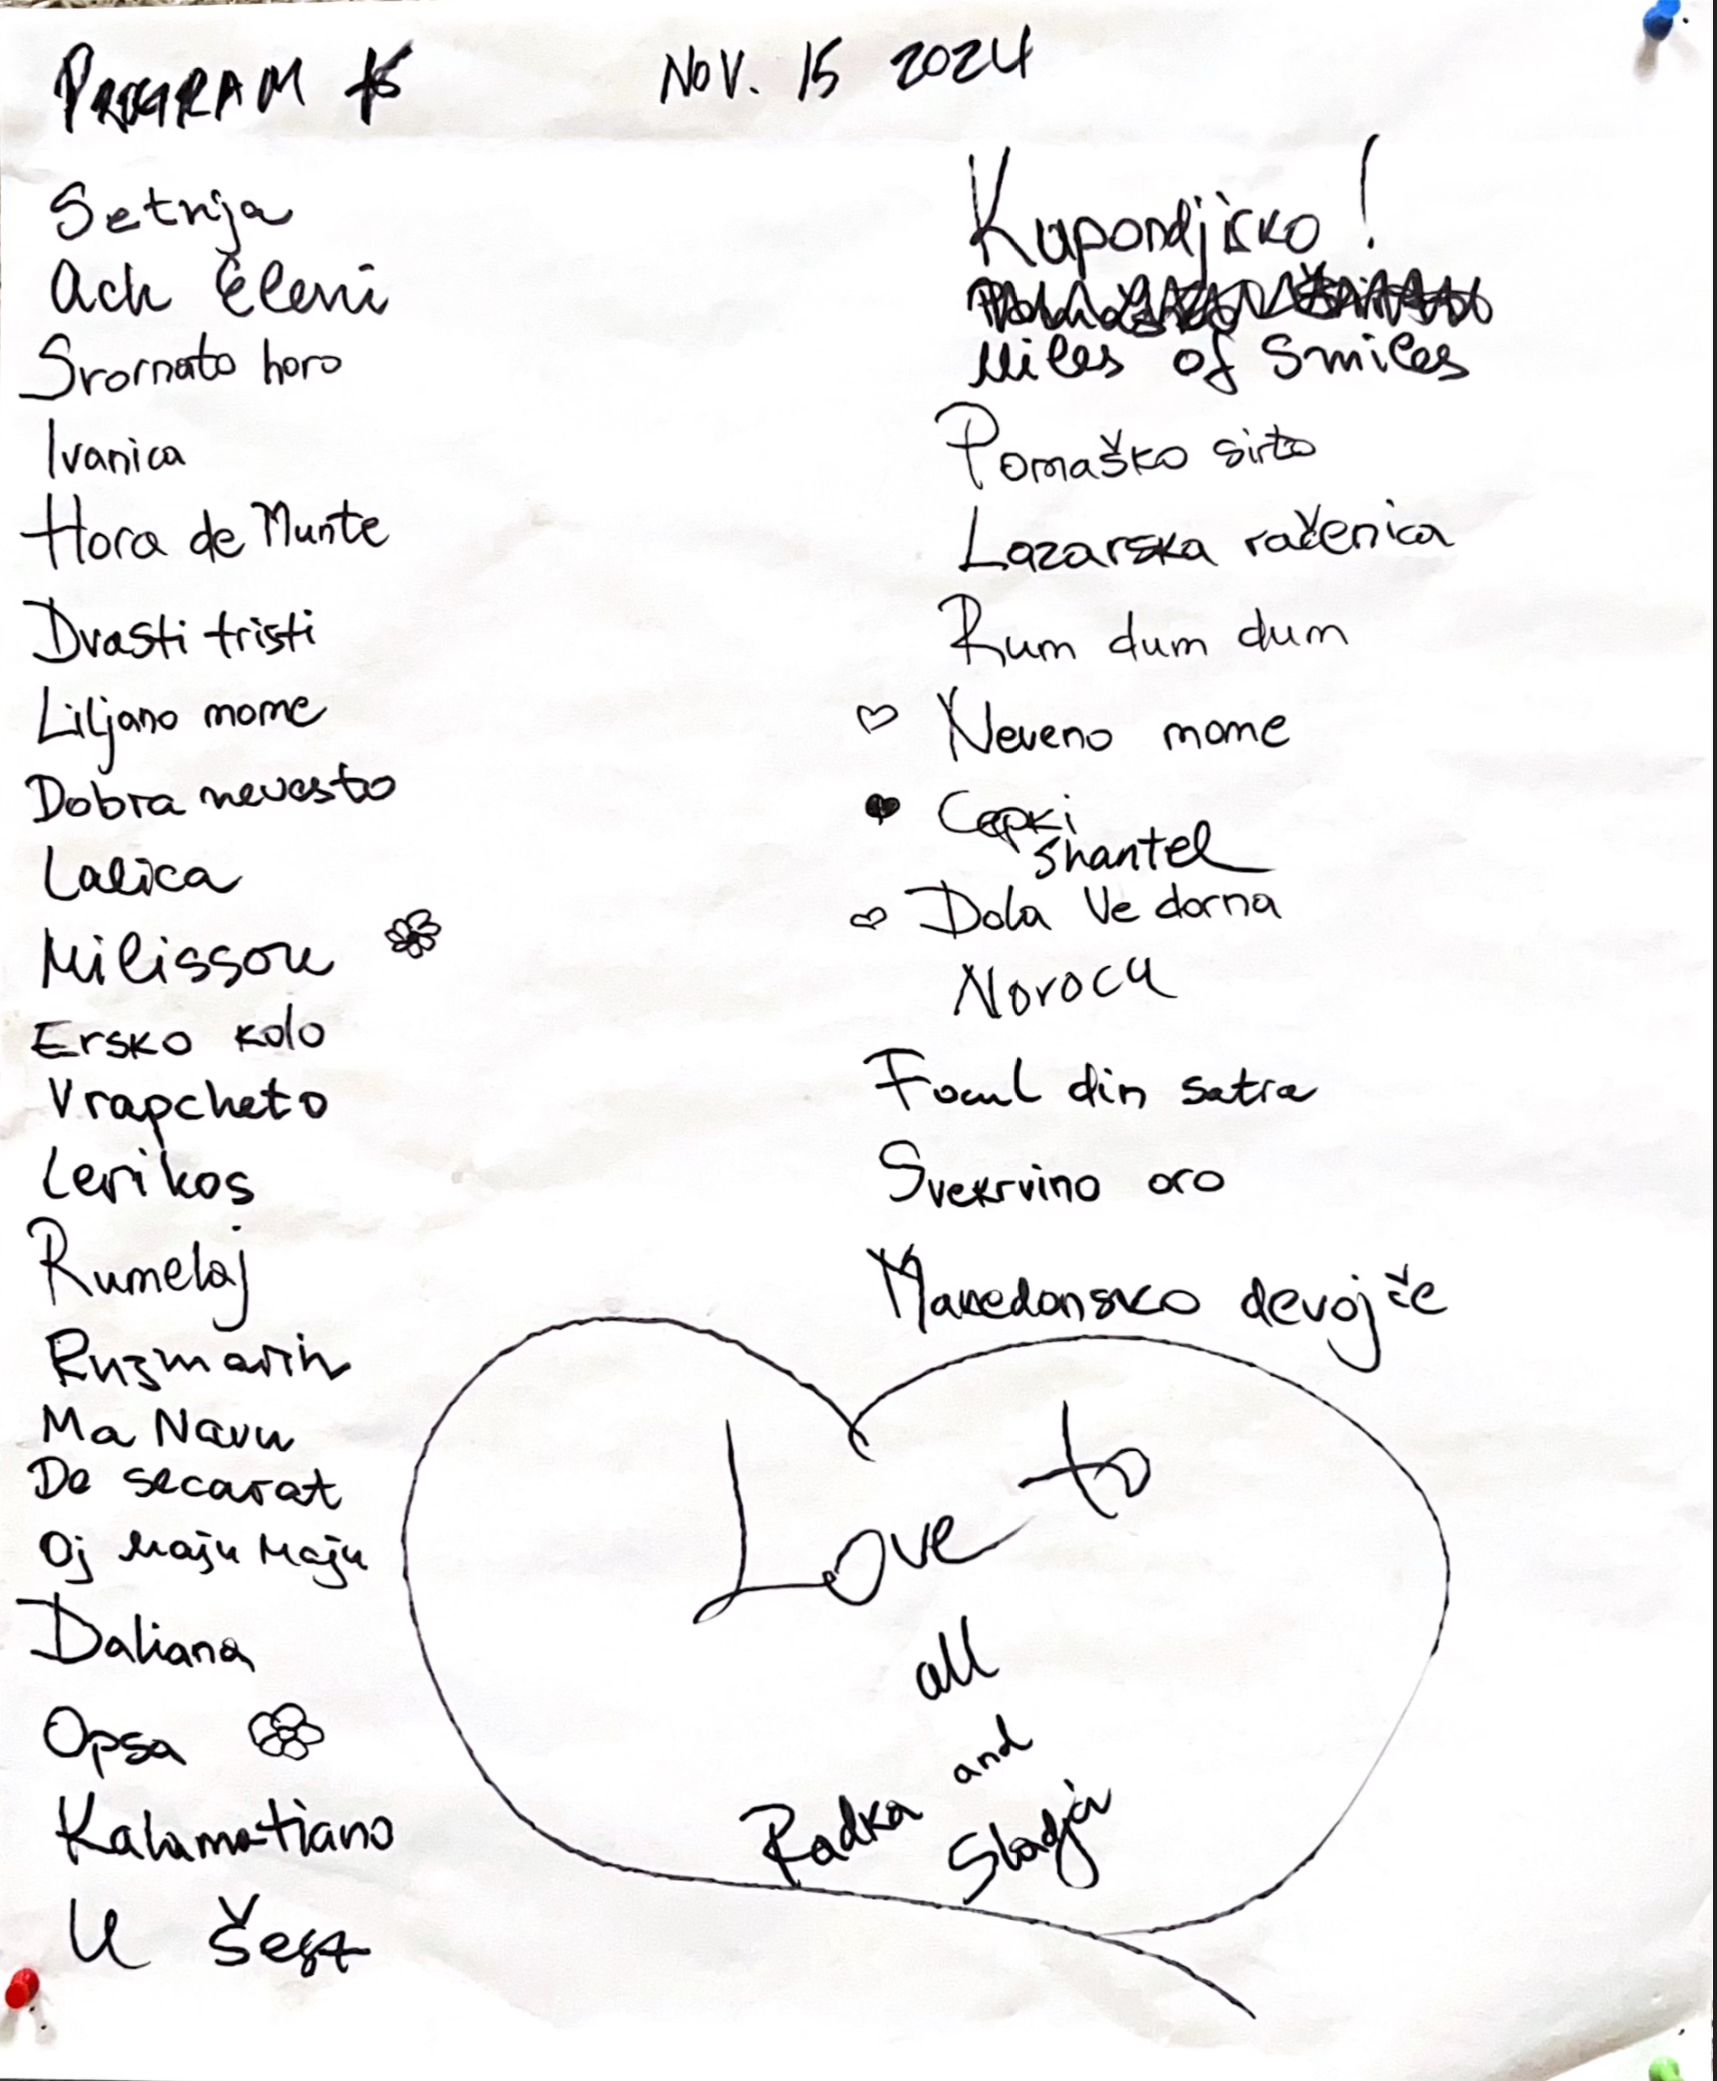 PROGRAM 15 NOV. 15 2024
Setnja
Ach Eleni
Srornato horo
Ivanica
Hora de Munte
Dvasti tristi
Liljano mome
Dobra nevesto
Lalica
Milissou
Ersko kolo
Vrapcheto
Lerikos
Rumelaj
Ruzmarin
Ma Navu
De secarat
Oj Maju Maju
Daliana
Opsa
Kalamatiano
U Šest
Kupondjisko!
Miles of Smiles
Pomaško sirto
Lazarska račenica
Rum dum dum
Neveno mome
Cepki
Shantel
Dola Ve dorna
Norocu
Focul din satra
Svekrvino oro
Makedonsko devojče
Love to
all
and
Radka Sladja